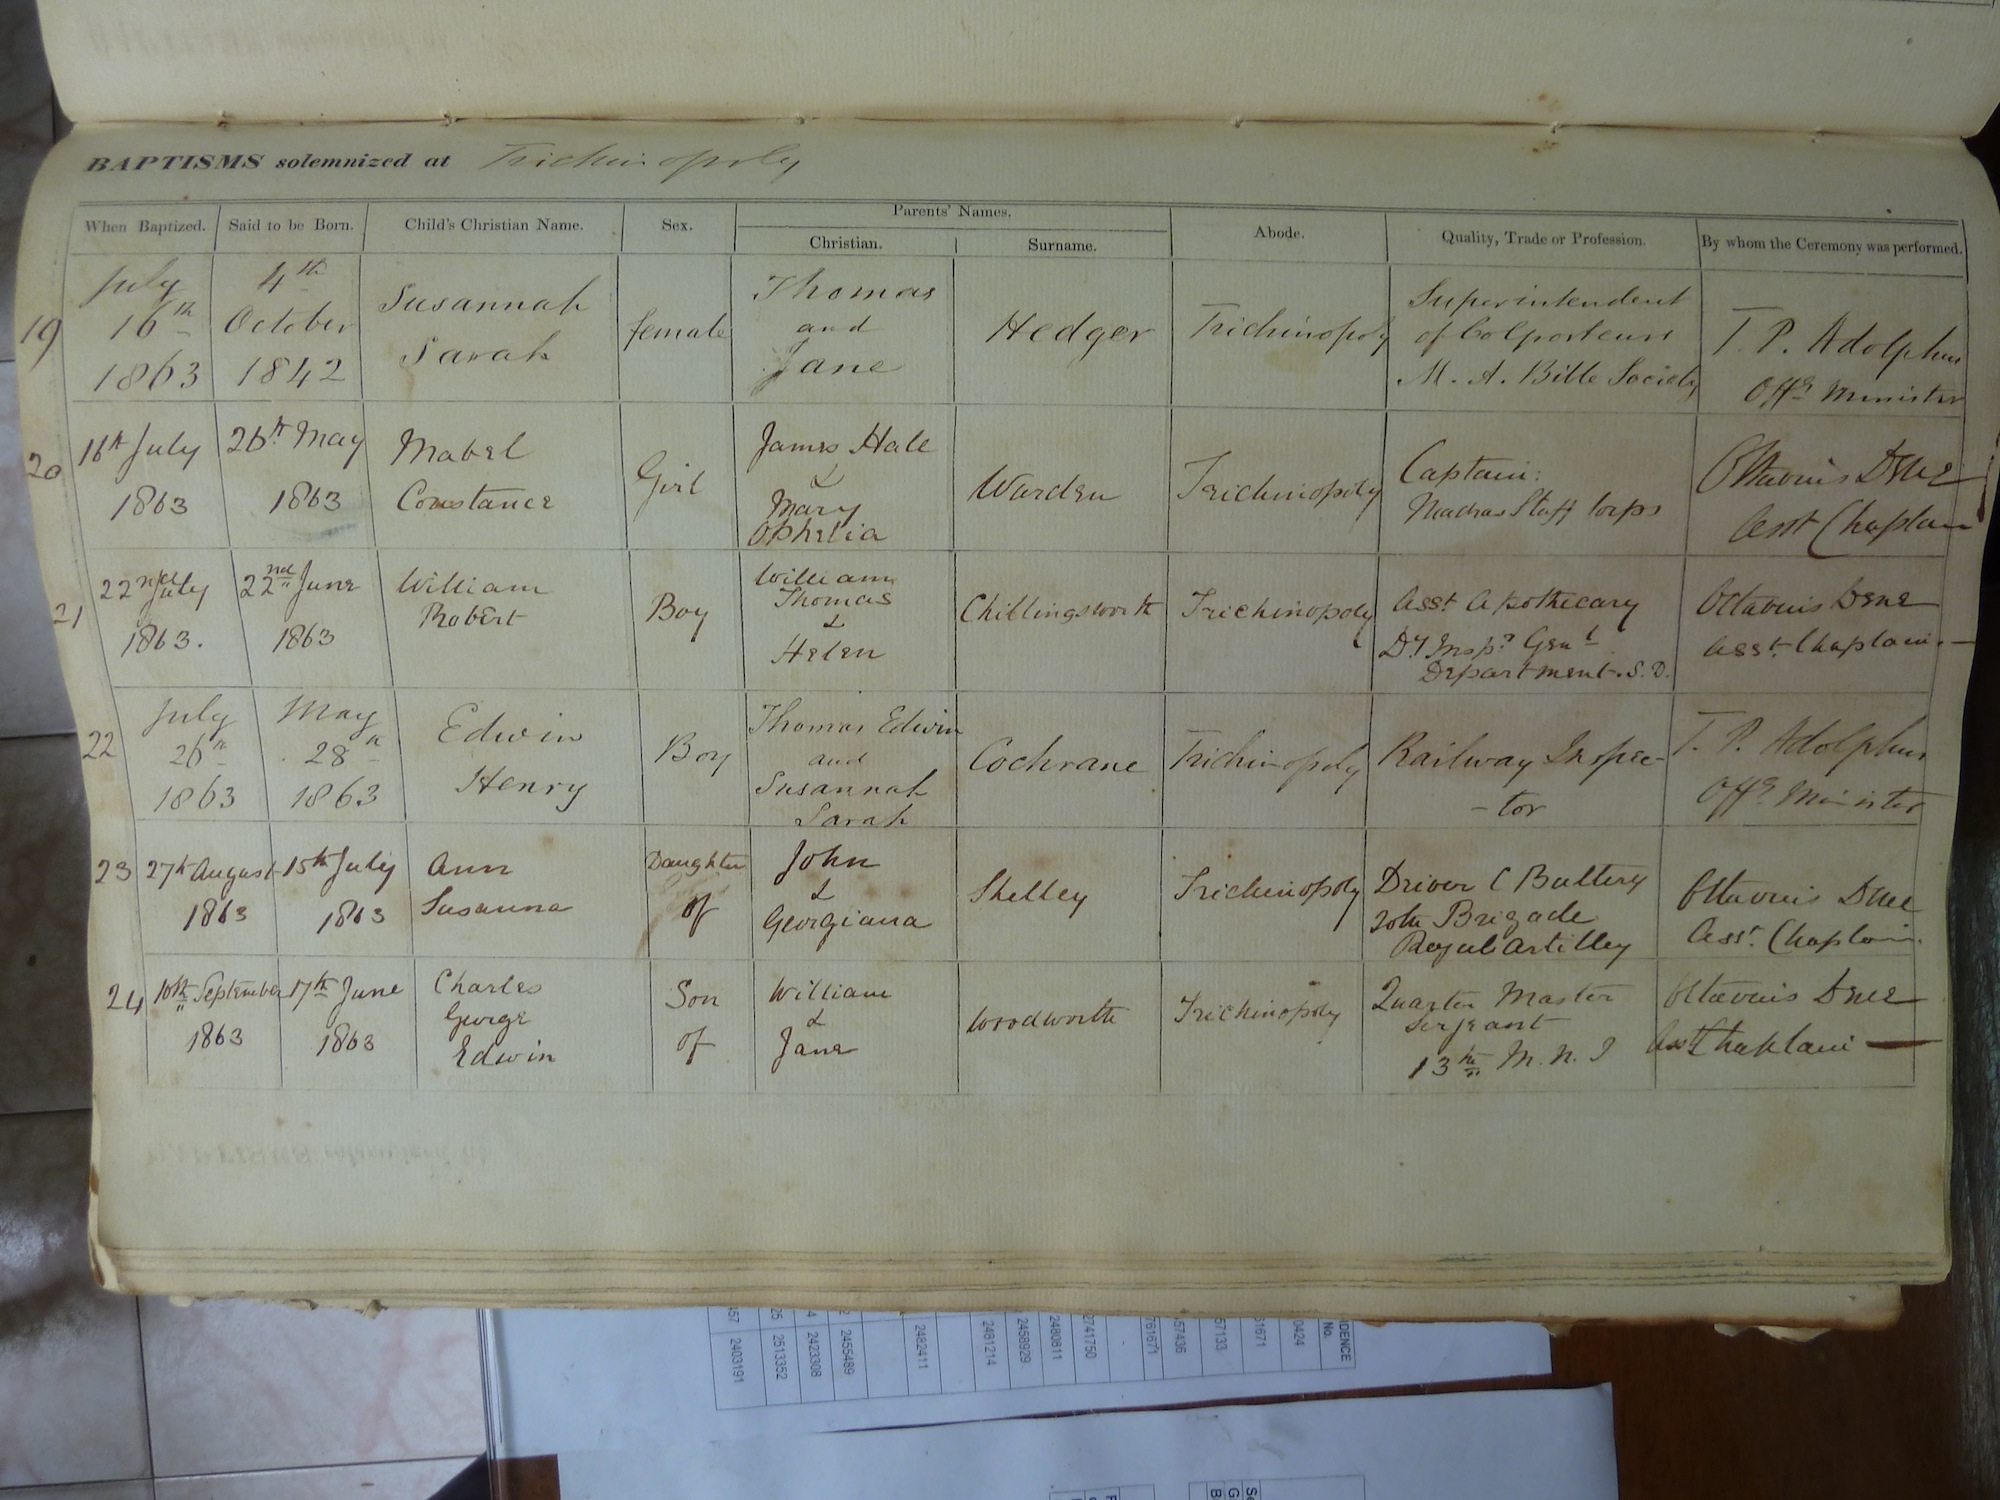 BAPTISMS solemnized at Trichinopoly
When Baptized. Said to be Born. Child's Christian Name. Sex. Parents' Names. Christian. Surname. Abode. Quality, Trade or Profession. By whom the Ceremony was performed.
19
July
16th
1863
4th
October
1842
Susannah
Sarah
female
Thomas
and
Jane
Hedger
Trichinopoly
Superintendent
of Colporteurs
M. A. Bible Society
T. P. Adolphus
Offg Minister
20
16th July
1863
26th May
1863
Mabel
Constance
Girl
James Hale
&
Mary
Ophelia
Warden
Trichinopoly
Captain:
Madras Staff Corps
Ottavius Dene
Asst Chaplain
21
22nd July
1863.
22nd June
1863
William
Robert
Boy
William
Thomas
&
Helen
Chillingsworth
Trichinopoly
Asst Apothecary
Dy Inspr Genl
Department. S. D.
Ottavius Dene
Asst. Chaplain. —
22
July
26th
1863
May
28th
1863
Edwin
Henry
Boy
Thomas Edwin
and
Susannah
Sarah
Cochrane
Trichinopoly
Railway Inspec-
-tor
T. P. Adolphus
Offg Minister
23
27th August
1863
15th July
1863
Ann
Susanna
Daughter
of
John
&
Georgiana
Shelley
Trichinopoly
Driver C Battery
20th Brigade
Royal Artilley
Ottavius Dene
Asst. Chaplain.
24
10th September
1863
17th June
1863
Charles
George
Edwin
Son
of
William
&
Jane
Woodworth
Trichinopoly
Quarter Master
Serjeant
13th M. N. I
Ottavius Dene
Asst Chaplain —
IDENCE
No.
0424
61671
57133
457436
761671
2741750
2480811
2458929
2481214
2482411
2 2455489
4 2423308
25 2513352
457 2403191